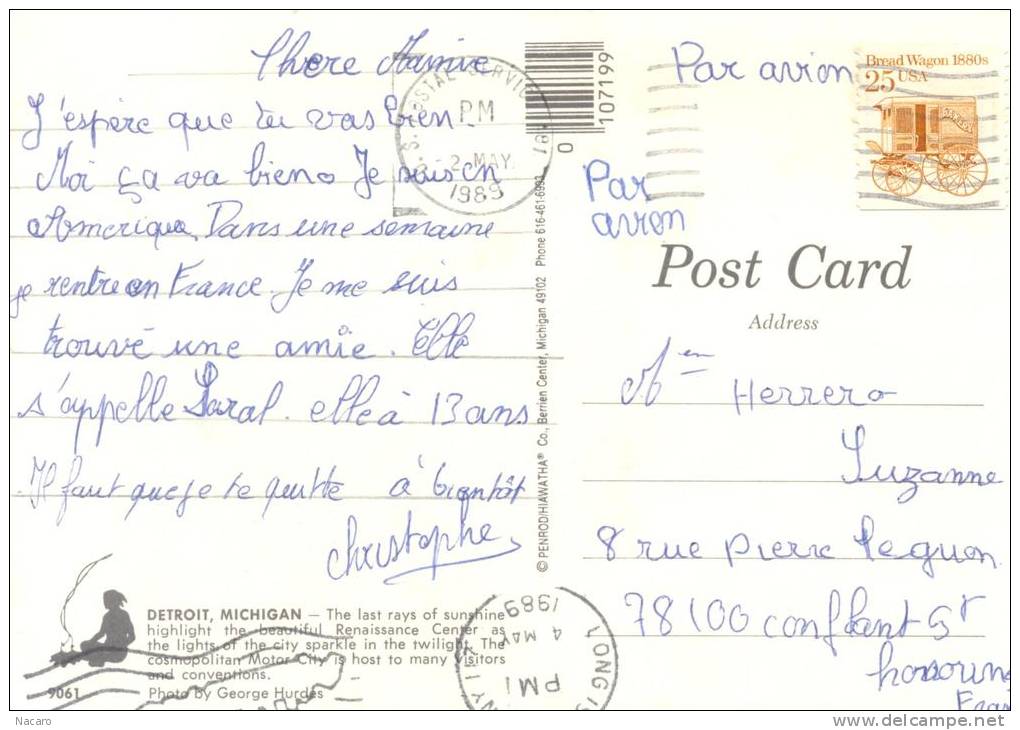 Chere Mamie
J'espère que tu vas bien.
Moi ça va bien. Je suis en
Amerique. Dans une semaine
je rentre en France. Je me suis
trouvé une amie. Elle
s'appelle Saral. elle à 13 ans.
Il faut que je te quitte à bientôt
Christophe
DETROIT, MICHIGAN — The last rays of sunshine
highlight the beautiful Renaissance Center as
the lights of the city sparkle in the twilight. The
cosmopolitan Motor City is host to many visitors
and conventions.
9061 Photo by George Hurdes
U.S. POSTAL SERVICE
PM
2 MAY
1989
0 107199
© PENROD/HIAWATHA® Co., Berrien Center, Michigan 49102 Phone 616-461-6993
Par avion
Par
avion
Bread Wagon 1880s
25 USA
BAKERY
Post Card
Address
Herrero
Suzanne
8 rue Pierre
78100 conflant St
Fran
LONG IS
NY 117
PM
4 MAY
1989
Nacaro
delcampe.net